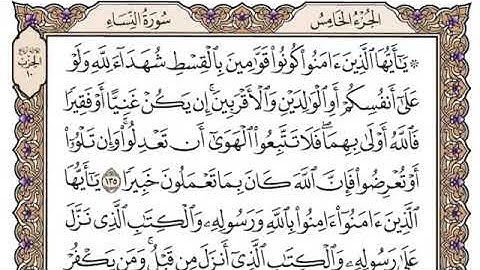 الجزء الخامس
سورة النساء
۞ يَـٰٓأَيُّهَا ٱلَّذِينَ ءَامَنُوا۟ كُونُوا۟ قَوَّٰمِينَ بِٱلْقِسْطِ شُهَدَآءَ لِلَّهِ وَلَوْ
عَلَىٰٓ أَنفُسِكُمْ أَوِ ٱلْوَٰلِدَيْنِ وَٱلْأَقْرَبِينَ ۚ إِن يَكُنْ غَنِيًّا أَوْ فَقِيرًا
فَٱللَّهُ أَوْلَىٰ بِهِمَا ۖ فَلَا تَتَّبِعُوا۟ ٱلْهَوَىٰٓ أَن تَعْدِلُوا۟ ۚ وَإِن تَلْوُۥٓا۟
أَوْ تُعْرِضُوا۟ فَإِنَّ ٱللَّهَ كَانَ بِمَا تَعْمَلُونَ خَبِيرًا ١٣٥ يَـٰٓأَيُّهَا
ٱلَّذِينَ ءَامَنُوٓا۟ ءَامِنُوا۟ بِٱللَّهِ وَرَسُولِهِۦ وَٱلْكِتَـٰبِ ٱلَّذِى نَزَّلَ
عَلَىٰ رَسُولِهِۦ وَٱلْكِتَـٰبِ ٱلَّذِىٓ أَنزَلَ مِن قَبْلُ ۚ وَمَن يَكْفُرْ
الحزب
١٠